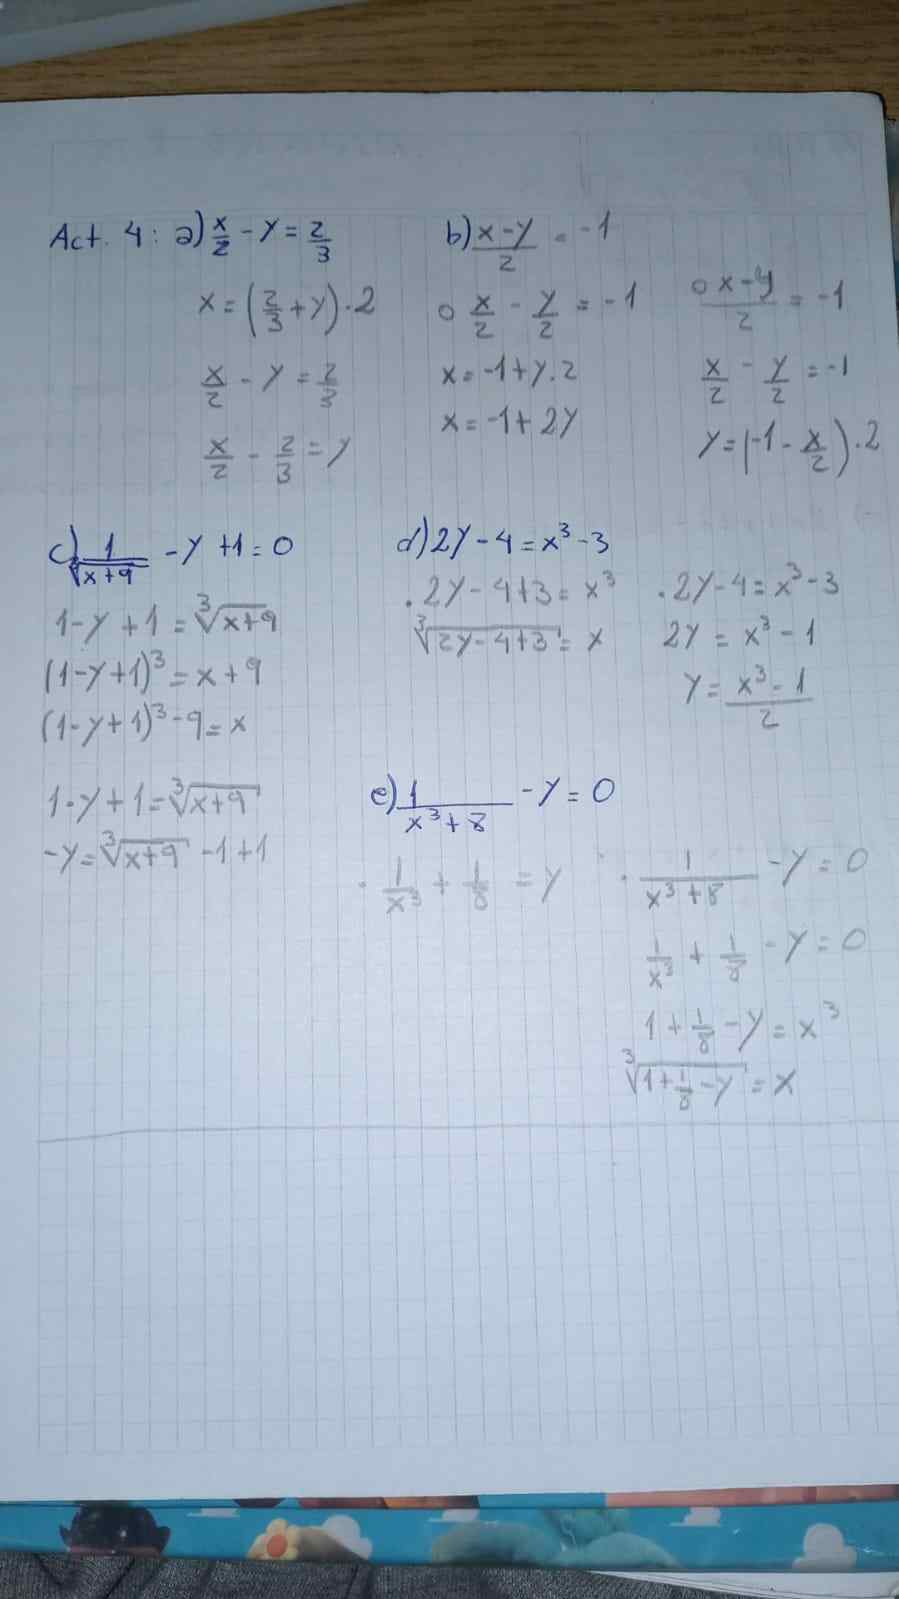 Act. 4: a) x/2 - y = 2/3
x = (2/3 + y) · 2
x/2 - y = 2/3
x/2 - 2/3 = y
b) (x-y)/2 = -1
○ x/2 - y/2 = -1
x = -1 + y . 2
x = -1 + 2y
○ (x-y)/2 = -1
x/2 - y/2 = -1
y = (-1 - x/2) · 2
c) 1/∛(x+9) - y + 1 = 0
1 - y + 1 = ∛(x+9)
(1-y+1)³ = x + 9
(1-y+1)³ - 9 = x
1 - y + 1 = ∛(x+9)
-y = ∛(x+9) - 1 + 1
d) 2y - 4 = x³ - 3
· 2y - 4 + 3 = x³
∛(2y-4+3) = x
· 2y - 4 = x³ - 3
2y = x³ - 1
y = (x³ - 1)/2
e) 1/(x³+8) - y = 0
· 1/x³ + 1/8 = y
· 1/(x³+8) - y = 0
1/x³ + 1/8 - y = 0
1 + 1/8 - y = x³
∛(1+1/8-y) = x